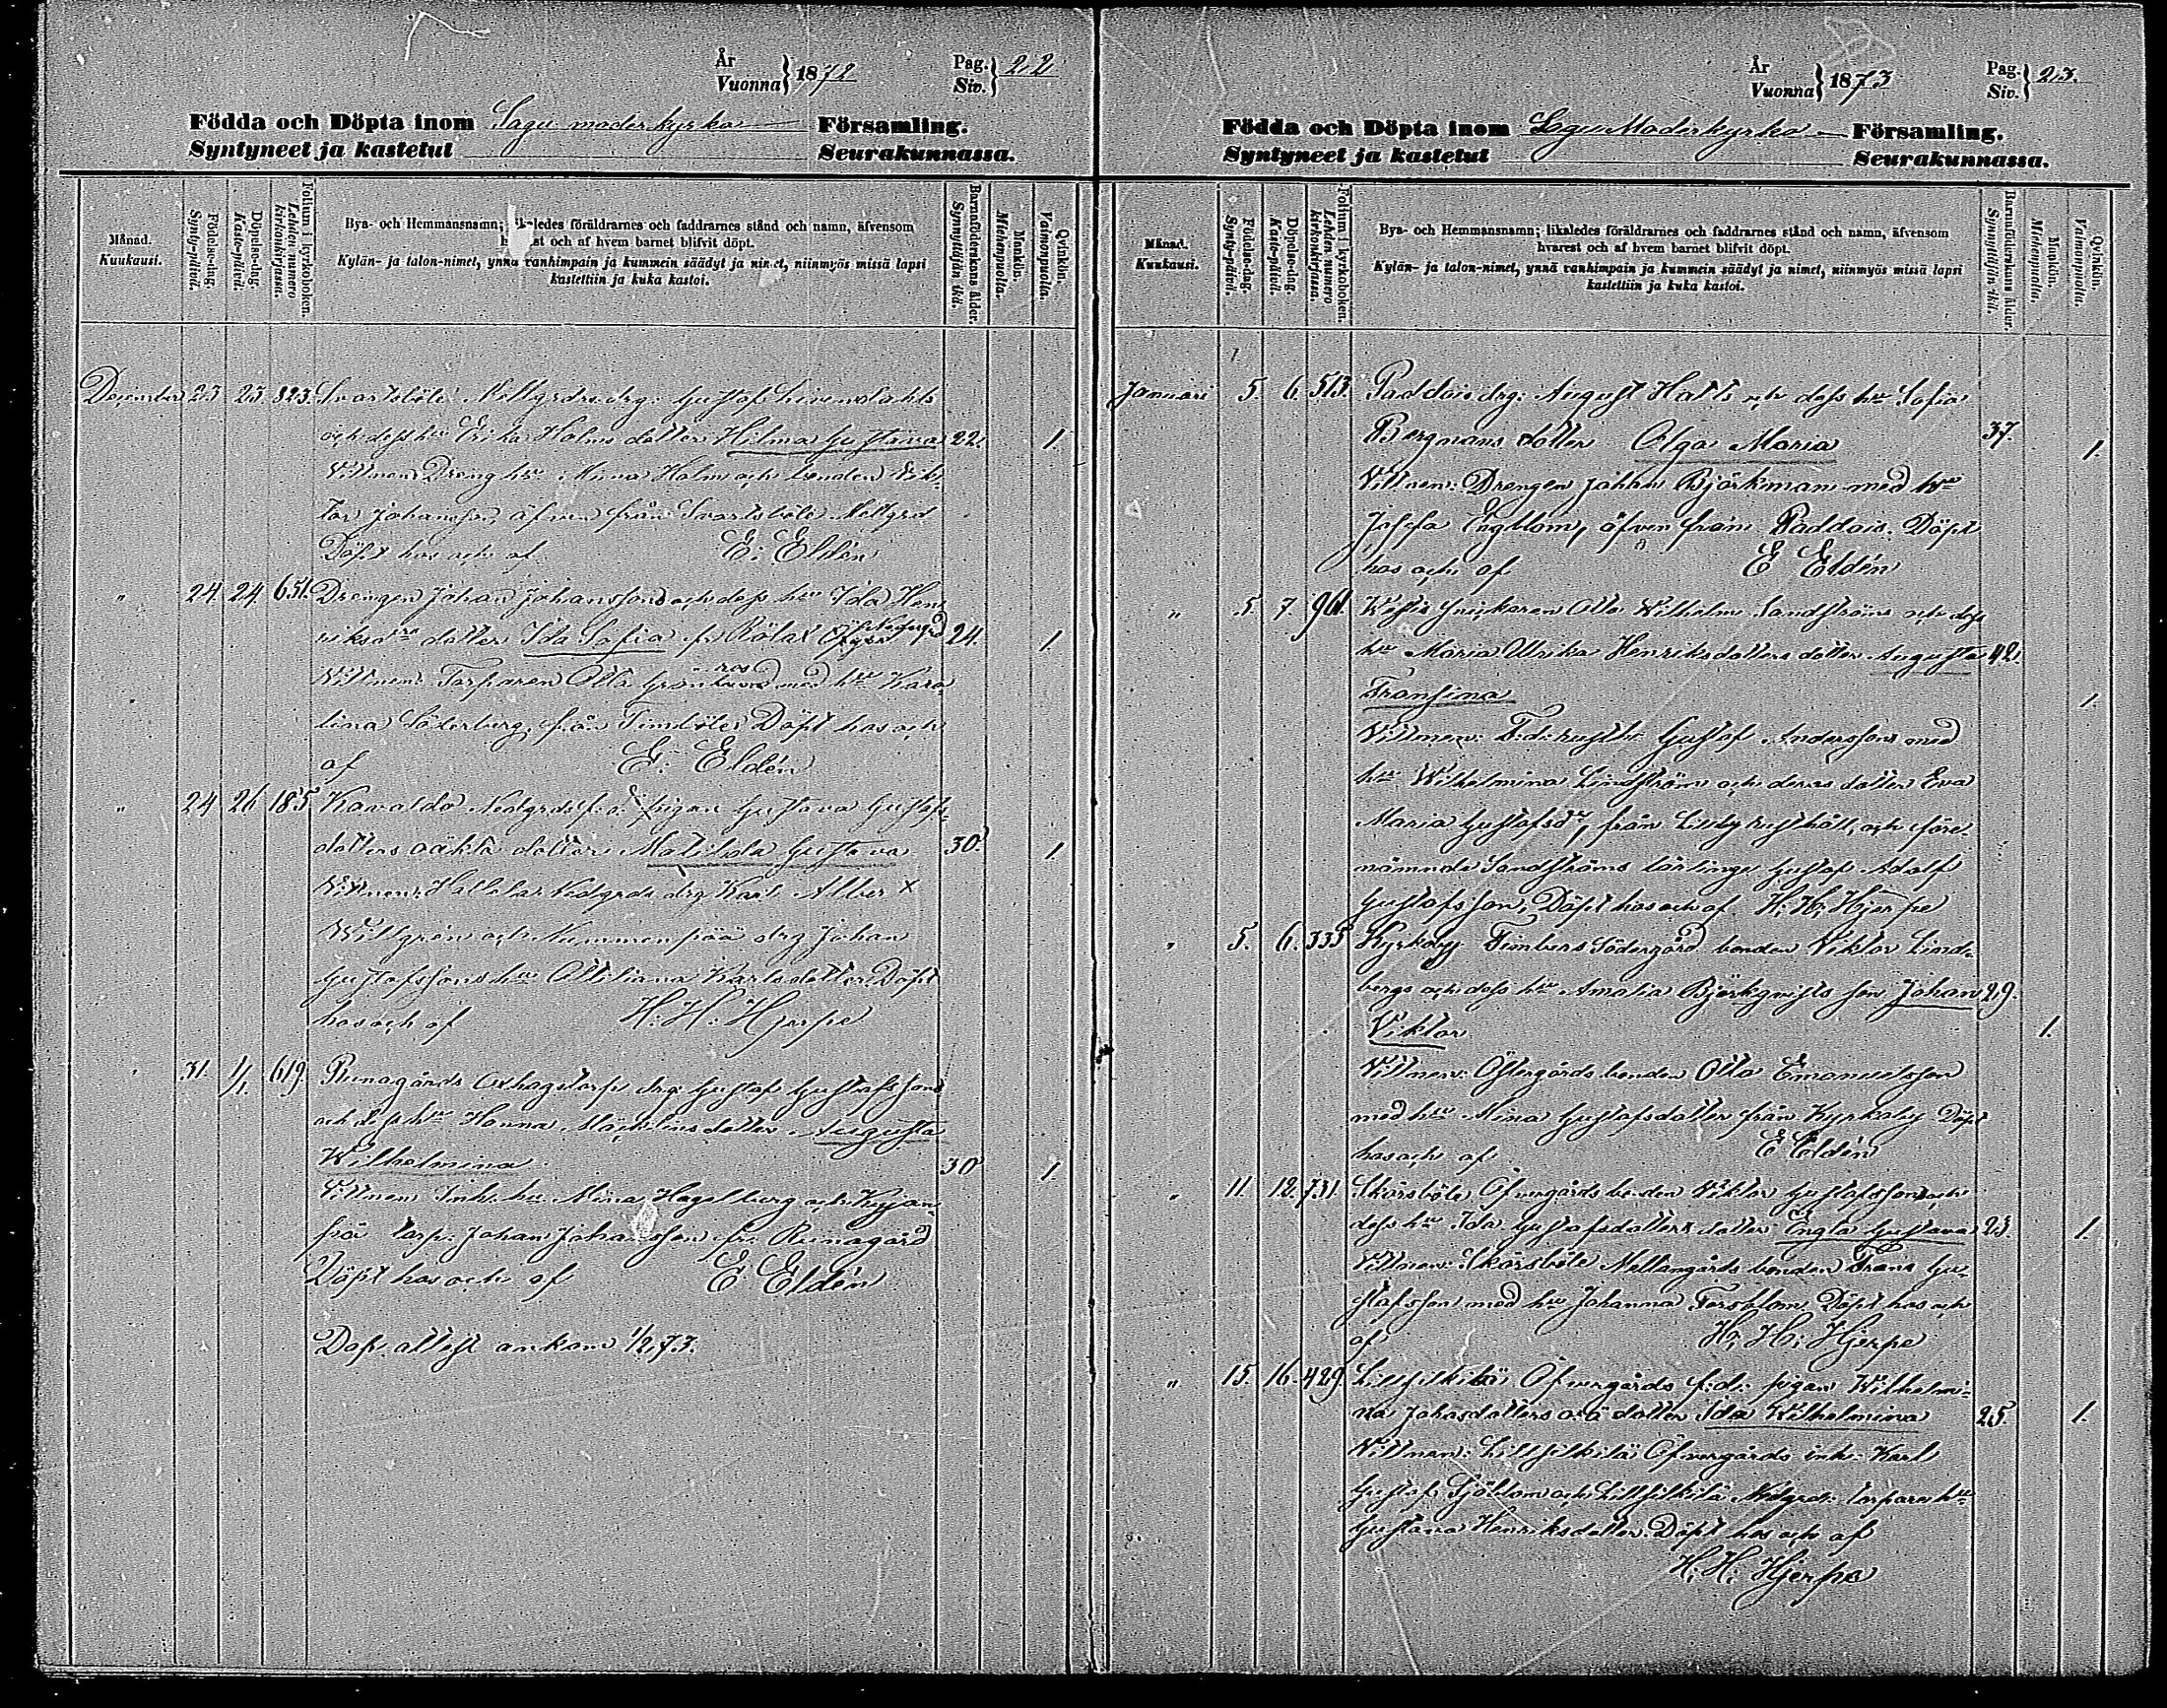 År
Vuonna } 1872
Pag.
Siv. } 22
Födda och Döpta inom Sagu moderkyrka Församling.
Syntyneet ja kastetut Seurakunnassa.
Månad.
Kuukausi.
Födelse-dag.
Synty-päivä.
Döpelse-dag.
Kaste-päivä.
Folium i kyrkoboken.
Lehden numero kirkonkirjassa.
Bya- och Hemmansnamn; likaledes föräldrarnes och faddrarnes stånd och namn, äfvensom
hvarest och af hvem barnet blifvit döpt.
Kylän- ja talon-nimet, ynnä vanhimpain ja kummein säädyt ja nimet, niinmyös missä lapsi
kastettiin ja kuka kastoi.
Barnaföderskans ålder.
Synnyttäjän ikä.
Mankön.
Miehenpuolta.
Qvinkön.
Vaimonpuolta.
December 23 25. 823. Svartsböle Mellgrds drg: Gustaf Liewendahls
och dess hu Erika Holms dotter Hilma Gustava 22. 1.
Vittnen Dreng hu Mina Holm och bonden Vik-
tor Johansson, äfven från Svartsböle Mellgrd
Döpt hos och af E: Eldén
" 24. 24. 651. Drengen Johan Johanssons och dess hu Ida Hen-
riksdrs dotter Ida Sofia fr Rölax 24. 1.
Vittnen: Torparen Otto Grönroos med hu Karo-
lina Söderberg, från Timböle Döpt hos och
af E: Eldén
" 24 26 185 Kawaldo Nedgrds f. d. pigan Gustava Gustafs-
dotters oäkta dotter Matilda Gustava 30. 1.
Vittnen: Hallela Nedgrds drg Karl Alber x
Willgrén och Nummenpää drg Johan
Gustafssons hu Ottiliana Karlsdotter Döpt
hos och af H: H: Hjerpe
31. 1/1. 619. Runagårds Oxhagstorp drg: Gustaf Gustafssons
och dess hu Hanna Mäcklins dotter Augusta
Wilhelmina 30 1.
Vittnen Inh: hu Mina Hagelberg och Kujan-
pää torp: Johan Johansson fr. Runagård
Döpt hos och af E Eldén
Dop attest ankom 1/2 73.
År
Vuonna } 1873
Pag.
Siv. } 23.
Födda och Döpta inom Sagu Moderkyrka Församling.
Syntyneet ja kastetut Seurakunnassa.
Månad.
Kuukausi.
Födelse-dag.
Synty-päivä.
Döpelse-dag.
Kaste-päivä.
Folium i kyrkoboken.
Lehden numero kirkonkirjassa.
Bya- och Hemmansnamn; likaledes föräldrarnes och faddrarnes stånd och namn, äfvensom
hvarest och af hvem barnet blifvit döpt.
Kylän- ja talon-nimet, ynnä vanhimpain ja kummein säädyt ja nimet, niinmyös missä lapsi
kastettiin ja kuka kastoi.
Barnaföderskans ålder.
Synnyttäjän ikä.
Mankön.
Miehenpuolta.
Qvinkön.
Vaimonpuolta.
Januari 5. 6. 513. Paddais drg: August Halls och dess hu Sofia
Bergmans dotter Olga Maria 37. 1.
Vittnen: Drengen Johan Björkman med hu
Josefa Engblom, äfven från Paddais. Döpt
hos och af E Eldén
" 5. 7. 961. Westis Snickaren Otto Wilhelm Sandströms och dess
hu Maria Ulrika Henriksdotters dotter Augusta 42.
Fransina 1.
Vittnen: F:d: rusth: Gustaf Andersson med
hu Wilhelmina Lindström och deras dotter Eva
Maria Gustafsdr, från Lillby rusthåll, och före-
nämnde Sandströms lärlinge Gustaf Adolf
Gustafsson, Döpt hos och af H: H: Hjerpe
" 5. 6. 335 Kyrkoby Timbers Södergård bonden Viktor Lind-
bergs och dess hu Amalia Björkqvists son Johan 29.
Viktor 1.
Vittnen: Östergårds bonden Otto Emanuelsson
med hu Mina Gustafsdotter från Kyrkoby Döpt
hos och af E Eldén
" 11. 12. 731. Skärsböle Öfvergårds bonden Viktor Gustafssons och
dess hu Ida Gustafsdotters dotter Engla Gustava 23. 1.
Vittnen: Skärsböle Mellangårds bonden Frans Gu-
stafsson med hu Johanna Forsblom, Döpt hos och
af H: H: Hjerpe
" 15. 16. 429 Lillsilkilä Öfvergårds f:d: pigan Wilhelmi-
na Johansdotters o:ä dotter Ida Wilhelmina 25. 1.
Vittnen: Lillsilkilä Öfvergårds inh: Karl
Gustaf Sjöblom och Lillsilkilä Nedgrds torpare hu
Gustava Henriksdotter. Döpt hos och af
H: H: Hjerpe